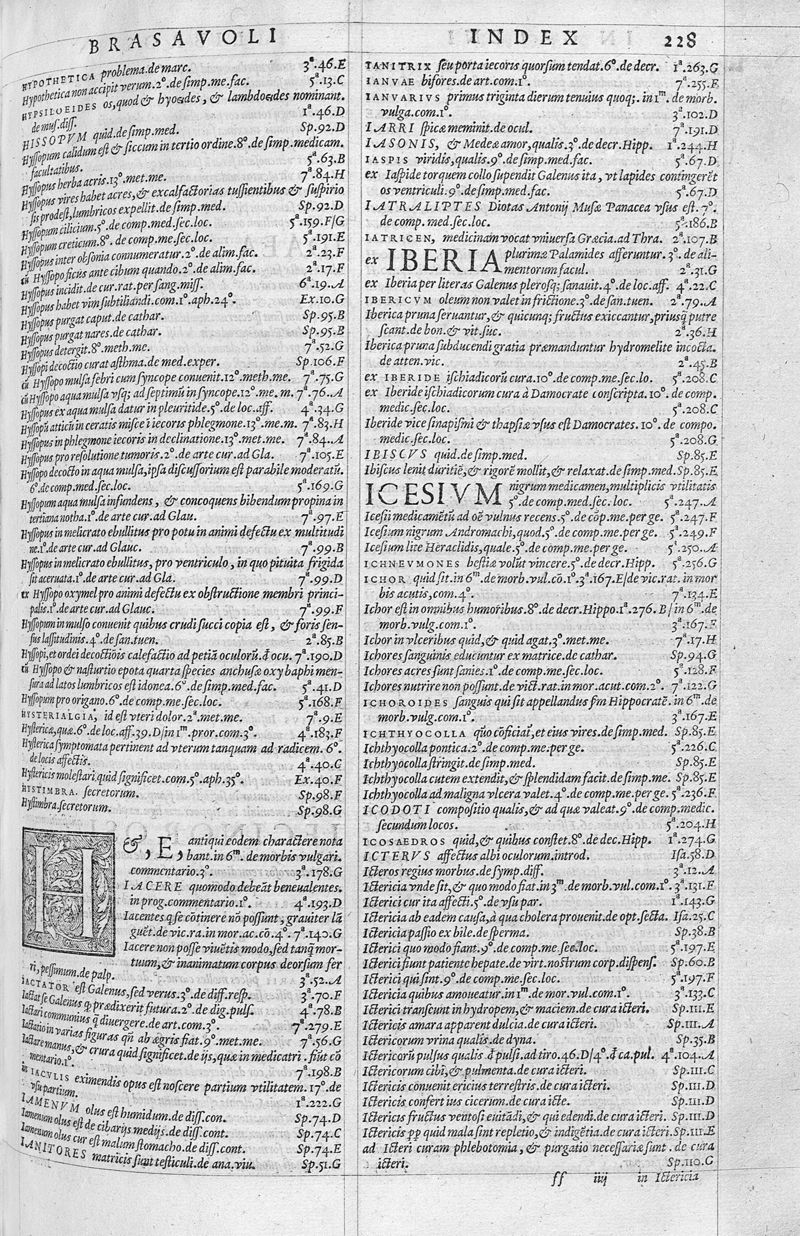 BRASAVOLI INDEX 228
HYPOTHETICA problema.de marc. 3ª.46.E
Hypothetica non accipit verum.2º.de simp.me.fac. 5ª.13.C
HYPSILOEIDES os, quod & hyoędes, & lambdoędes nominant.
de mus.diss. 1ª.46.D
HISSOPVM quid.de simp.med. Sp.92.D
Hyssopum calidum est & siccum in tertio ordine.8º.de simp.medicam.
facultatibus. 5ª.63.B
Hyssopus herba acris.13º.met.me. 7ª.84.H
Hyssopus vires habet acres, & excalfactorias tussientibus & suspirio
sis prodest, lumbricos expellit.de simp.med. Sp.92.D
Hyssopum cilicium.5º.de comp.med.sec.loc. 5ª.159.F/G
Hyssopum creticum.8º.de comp.me.sec.loc. 5ª.191.E
Hyssopus inter obsonia connumeratur.2º.de alim.fac. 2ª.23.F
cū Hyssopo ficus ante cibum quando.2º.de alim.fac. 2ª.17.F
Hyssopus incidit.de cur.rat.per sang.miss. 6ª.19.A
Hyssopus habet vim subtiliandi.com.1º.aph.24º. Ex.10.G
Hyssopus purgat caput.de cathar. Sp.95.B
Hyssopus purgat nares.de cathar. Sp.95.B
Hyssopus detergit.8º.meth.me. 7ª.52.G
Hyssopi decoctio curat asthma.de med.exper. Sp.106.F
cū Hyssopo mulsa febri cum syncope conuenit.12º.meth.me. 7ª.75.G
cū Hyssopo aqua mulsa vsq; ad septimū in syncope.12º.me.m. 7ª.76.A
Hyssopus ex aqua mulsa datur in pleuritide.5º.de loc.aff. 4ª.34.G
Hyssopū atticū in ceratis misce ī iecoris phlegmone.13º.me.m. 7ª.83.H
Hyssopus in phlegmone iecoris in declinatione.13º.met.me. 7ª.84.A
Hyssopus pro resolutione tumoris.2º.de arte cur.ad Gla. 7ª.105.E
Hyssopo decocto in aqua mulsa, ipsa discussorium est parabile moderatū.
6º.de comp.med.sec.loc. 5ª.169.G
Hyssopum aqua mulsa infundens, & concoquens bibendum propina in
tertiana notha.1º.de arte cur.ad Glau. 7ª.97.E
Hyssopus in melicrato ebullitus pro potu in animi defectu ex multitudi
ne.1º.de arte cur.ad Glauc. 7ª.99.B
Hyssopus in melicrato ebullitus, pro ventriculo, in quo pituita frigida
sit aceruata.1º.de arte cur.ad Gla. 7ª.99.D
ex Hyssopo oxymel pro animi defectu ex obstructione membri princi-
palis.1º.de arte cur.ad Glauc. 7ª.99.F
Hyssopum in mulso conuenit quibus crudi succi copia est, & foris sen-
sus lassitudinis.4º.de san.tuen. 2ª.85.B
Hyssopi, et ordei decoctiōis calefactio ad petiā oculorū.d' ocu. 7ª.190.D
cū Hyssopo & nasturtio epota quarta species anchusæ oxybaphi men-
sura ad latos lumbricos est idonea.6º.de simp.med.fac. 5ª.41.D
Hyssopum pro origano.6º.de comp.me.sec.loc. 5ª.168.F
HYSTERIALGIA, id est vteri dolor.2º.met.me. 7ª.9.E
Hysterica, quæ.6º.de loc.aff.39.D/in 1m.pror.com.3º. 4ª.183.F
Hysterica symptomata pertinent ad vterum tanquam ad radicem.6º.
de locis affectis. 4ª.40.C
Hystericis molestari.quid significet.com.5º.aph.35º. Ex.40.F
HISTIMBRA. secretorum. Sp.98.F
Hystimbra.secretorum. Sp.98.G
H &, E, antiqui eodem charactere nota
bant.in 6m.de morbis vulgari.
commentario.3º. 3ª.178.G
IACERE quomodo debeāt beneualentes.
in prog.commentario.1º. 4ª.193.D
Iacentes q se cōtinere nō possint, grauiter lā
guēt.de vic.ra.in mor.ac.cō.4º. 7ª.140.G
Iacere non posse viuētis modo, sed tanq̄ mor-
tuum, & inanimatum corpus deorsum fer
ri, pessimum.de palp. 3ª.52.A
IACTATOR est Galenus, sed verus.3º.de diff.resp. 3ª.70.F
Iactat se Galenus q prædixerit futura.2º.de dig.puls. 4ª.78.B
Iactari communius q̄ diuergere.de art.com.3º. 7ª.279.E
Iactatio in varias figuras qn̄ ab ęgris fiat.9º.met.me. 7ª.56.G
Iactare manus, & crura quid significet.de ijs, quæ in medicatri.fiūt cō
mentario.1º. 7ª.198.B
in IACVLIS eximendis opus est noscere partium vtilitatem.17º.de
vsu partium. 1ª.222.G
IAMENVM olus est humidum.de diss.con. Sp.74.D
Iamenum olus est de cibarijs medijs.de diss.cont. Sp.74.C
Iamenum olus cur est malum stomacho.de diss.cont. Sp.74.E
IANITORES matricis sunt testiculi.de ana.viu. Sp.51.G
IANITRIX seu porta iecoris quorsum tendat.6º.de decr. 1ª.263.G
IANVAE bifores.de art.com.1º. 7ª.255.F
IANVARIVS primus triginta dierum tenuius quoq;.in 1m.de morb.
vulga.com.1º. 3ª.102.D
IARRI spicæ meminit.de ocul. 7ª.191.D
IASONIS, & Medeæ amor, qualis.3º.de decr.Hipp. 1ª.244.H
IASPIS viridis, qualis.9º.de simp.med.fac. 5ª.67.D
ex Iaspide torquem collo suspendit Galenus ita, vt lapides contingerēt
os ventriculi.9º.de simp.med.fac. 5ª.67.D
IATRALIPTES Diotas Antonij Musæ Panacea vsus est.7º.
de comp.med.sec.loc. 5ª.186.B
IATRICEN, medicinam vocat vniuersa Græcia.ad Thra. 2ª.107.B
ex IBERIA plurimæ Palamides afferuntur.3º.de ali-
mentorum facul. 2ª.31.G
ex Iberia per literas Galenus plerosq; sanauit.4º.de loc.aff. 4ª.22.C
IBERICVM oleum non valet in frictione.3º.de san.tuen. 2ª.79.A
Iberica pruna seruantur, & quicunq; fructus exiccantur, priusq̄ putre
scant.de bon.& vit.suc. 2ª.36.H
Iberica pruna subducendi gratia præmanduntur hydromelite incocta.
de atten.vic. 2ª.45.B
ex IBERIDE ischiadicorū cura.10º.de comp.me.sec.lo. 5ª.208.C
ex Iberide ischiadicorum cura à Damocrate conscripta.10º.de comp.
medic.sec.loc. 5ª.208.C
Iberide vice sinapismi & thapsiæ vsus est Damocrates.10º.de compo.
medic.sec.loc. 5ª.208.G
IBISCVS quid.de simp.med. Sp.85.E
Ibiscus lenit duritiē, & rigorē mollit, & relaxat.de simp.med. Sp.85.E
ICESIVM nigrum medicamen, multiplicis vtilitatis
5º.de comp.med.sec.loc. 5ª.247.A
Icesii medicamētū ad oē vulnus recens.5º.de cōp.me.per ge. 5ª.247.F
Icesium nigrum Andromachi, quod.5º.de comp.me.per ge. 5ª.249.F
Icesium lite Heraclidis, quale.5º.de comp.me.per ge. 5ª.250.A
ICHNEVMONES bestiæ volūt vincere.5º.de decr.Hipp. 5ª.256.G
ICHOR quid sit.in 6m.de morb.vul.cō.1º.3ª.167.E/de vic.rat.in mor
bis acutis, com.4º. 7ª.134.E
Ichor est in omnibus humoribus.8º.de decr.Hippo.1ª.276.B/in 6m.de
morb.vulg.com.1º. 3ª.167.F
Ichor in vlceribus quid, & quid agat.3º.met.me. 7ª.17.H
Ichores sanguinis educuntur ex matrice.de cathar. Sp.94.G
Ichores acres sunt sanies.1º.de comp.me.sec.loc. 5ª.128.F
Ichores nutrire non possunt.de vict.rat.in mor.acut.com.2º. 7ª.122.G
ICHOROIDES sanguis qui sit appellandus sm Hippocratē.in 6m.de
morb.vulg.com.1º. 3ª.167.E
ICHTHYOCOLLA quō cōficiat, et eius vires.de simp.med. Sp.85.E
Ichthyocolla pontica.2º.de comp.me.per ge. 5ª.226.C
Ichthyocolla stringit.de simp.med. Sp.85.E
Ichthyocolla cutem extendit, & splendidam facit.de simp.me. Sp.85.E
Ichthyocolla ad maligna vlcera valet.4º.de comp.me.per ge. 5ª.236.F
ICODOTI compositio qualis, & ad quæ valeat.9º.de comp.medic.
secundum locos. 5ª.204.H
ICOSAEDROS quid, & quibus constet.8º.de dec.Hipp. 1ª.274.G
ICTERVS affectus albi oculorum.introd. Isa.58.D
Icteros regius morbus.de symp.diff. 3ª.12.A
Ictericia vnde sit, & quo modo fiat.in 3m.de morb.vul.com.1º. 3ª.131.F
Icterici cur ita affecti.5º.de vsu par. 1ª.143.G
Ictericia ab eadem causa, à qua cholera prouenit.de opt.secta. Isa.25.C
Ictericia passio ex bile.de sperma. Sp.38.B
Icterici quo modo fiant.9º.de comp.me.sec.loc. 5ª.197.E
Icterici fiunt patiente hepate.de virt.nostrum corp.dispens. Sp.60.B
Icterici qui sint.9º.de comp.me.sec.loc. 5ª.197.F
Ictericia quibus amoueatur.in 1m.de mor.vul.com.1º. 3ª.133.C
Icterici transeunt in hydropem, & maciem.de cura icteri. Sp.111.E
Ictericis amara apparent dulcia.de cura icteri. Sp.111.A
Ictericorum vrina qualis.de dyna. Sp.35.B
Ictericorū pulsus qualis d' pulsi.ad tiro.46.D/4º.d' ca.pul. 4ª.104.A
Ictericorum cibi, & pulmenta.de cura icteri. Sp.111.C
Ictericis conuenit ericius terrestris.de cura icteri. Sp.111.D
Ictericis confert ius cicerum.de cura icte. Sp.111.D
Ictericis fructus ventosi euitādi, & qui edendi.de cura icteri. Sp.111.D
Ictericis pp quid mala sint repletio, & indigētia.de cura icteri. Sp.111.E
ad Icteri curam phlebotomia, & purgatio necessariæ sunt.de cura
icteri. Sp.110.G
ff iiij in Ictericia